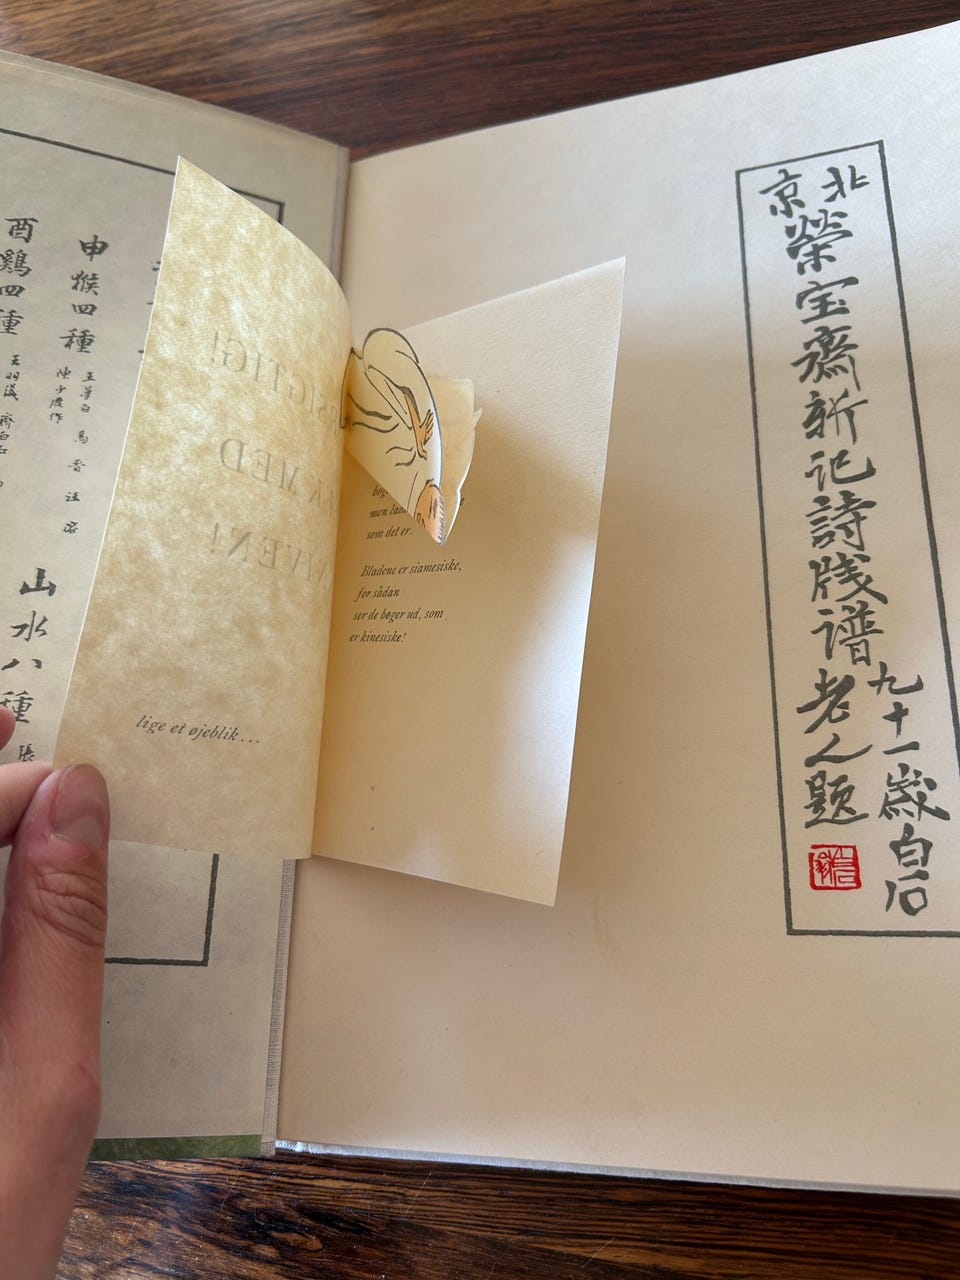 酉鷄四種
申猴四種
王夢白 馬晋 汪溶
陳少鹿作
山水八種
張
SIGTIG!
MED
NIVEN!
lige et øjeblik...
som det er.
Bladene er siamesiske,
for sådan
ser de bøger ud, som
er kinesiske!
北京
榮宝齋新记詩牋谱
老人题
九十一歲白石